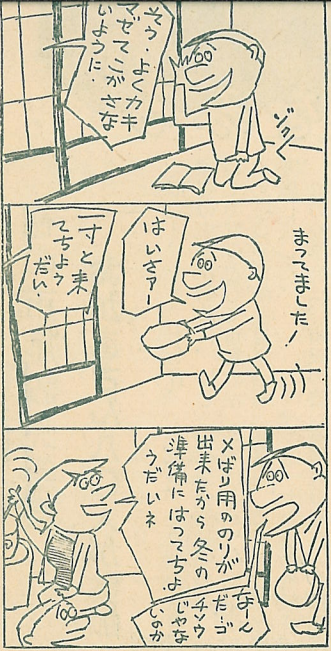 ゾク〱
そう・よくカキ
マゼてこがさな
いように・
まってました!
はいさァー
一寸と来
てちよう
だい、
メばり用ののりが
出来たから冬の
準備にはつてちよ
うだいネ
なーん
だーゴ
チソウ
じゃな
いのか